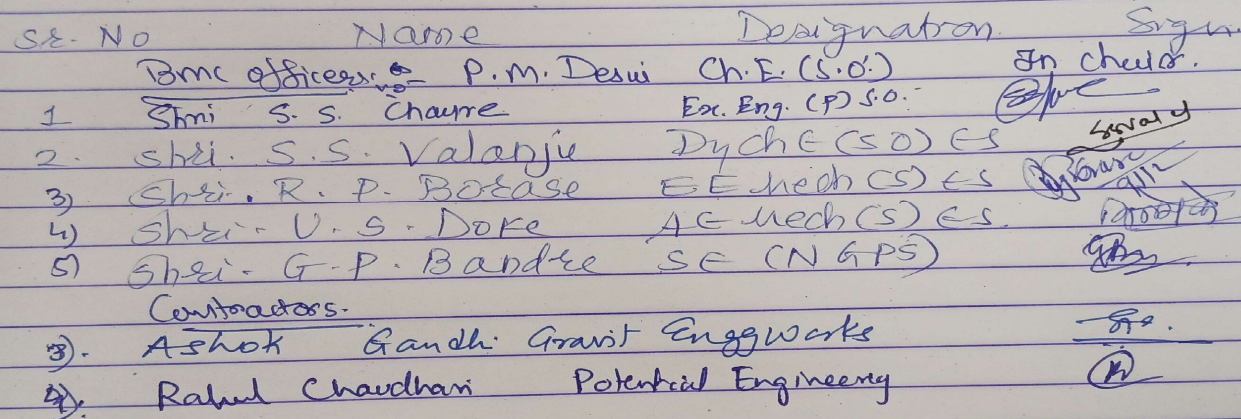 Sr. No Name Designation Sign.
BMC officers:- P.M. Desai Ch.E. (S.O.) In chair.
1 Shri S. S. Chaure Exe. Eng. (P) S.O.-
2. Shri. S.S. Valanju Dy Ch E (SO) ES
3) Shri. R. P. Borase EE Mech (S) ES
4) Shri. U. S. Doke AE Mech (S) ES.
5) Shri. G. P. Bandre SE (NGPS)
Contractors.
3). Ashok Gandhi Gravit Enggworks
4). Rahul Chaudhari Potential Engineering